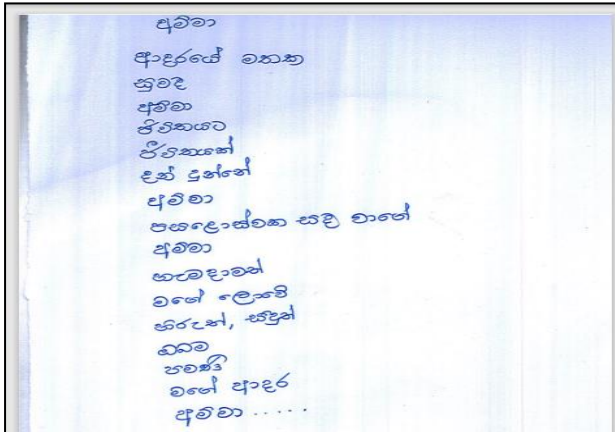 අම්මා
ආදරයේ මතක
සුවඳ
අම්මා
ජීවිතයට
ජීවිතයක්
දන් දුන්නේ
අම්මා
පසළොස්වක සඳ වාගේ
අම්මා
හැමදාමත්
මගේ ලොවේ
හිරුත්, සඳුත්
ඔබම
පමණි
මගේ ආදර
අම්මා .....